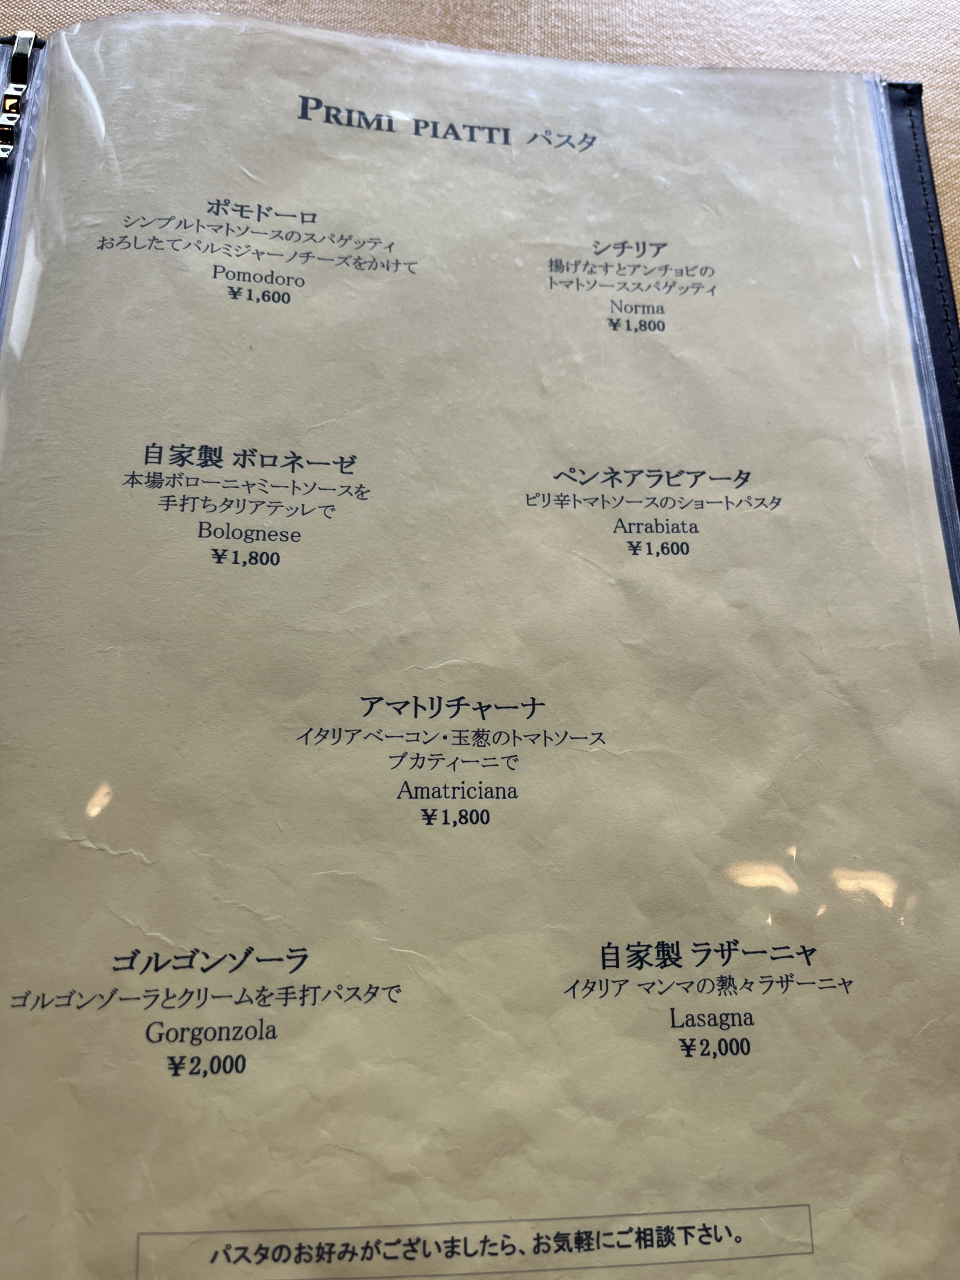 PRIMI PIATTI パスタ
ポモドーロ
シンプルトマトソースのスパゲッティ
おろしたてパルミジャーノチーズをかけて
Pomodoro
¥1,600
シチリア
揚げなすとアンチョビの
トマトソーススパゲッティ
Norma
¥1,800
自家製 ボロネーゼ
本場ボローニャミートソースを
手打ちタリアテッレで
Bolognese
¥1,800
ペンネアラビアータ
ピリ辛トマトソースのショートパスタ
Arrabiata
¥1,600
アマトリチャーナ
イタリアベーコン・玉葱のトマトソース
ブカティーニで
Amatriciana
¥1,800
ゴルゴンゾーラ
ゴルゴンゾーラとクリームを手打パスタで
Gorgonzola
¥2,000
自家製 ラザーニャ
イタリア マンマの熱々ラザーニャ
Lasagna
¥2,000
パスタのお好みがございましたら、お気軽にご相談下さい。